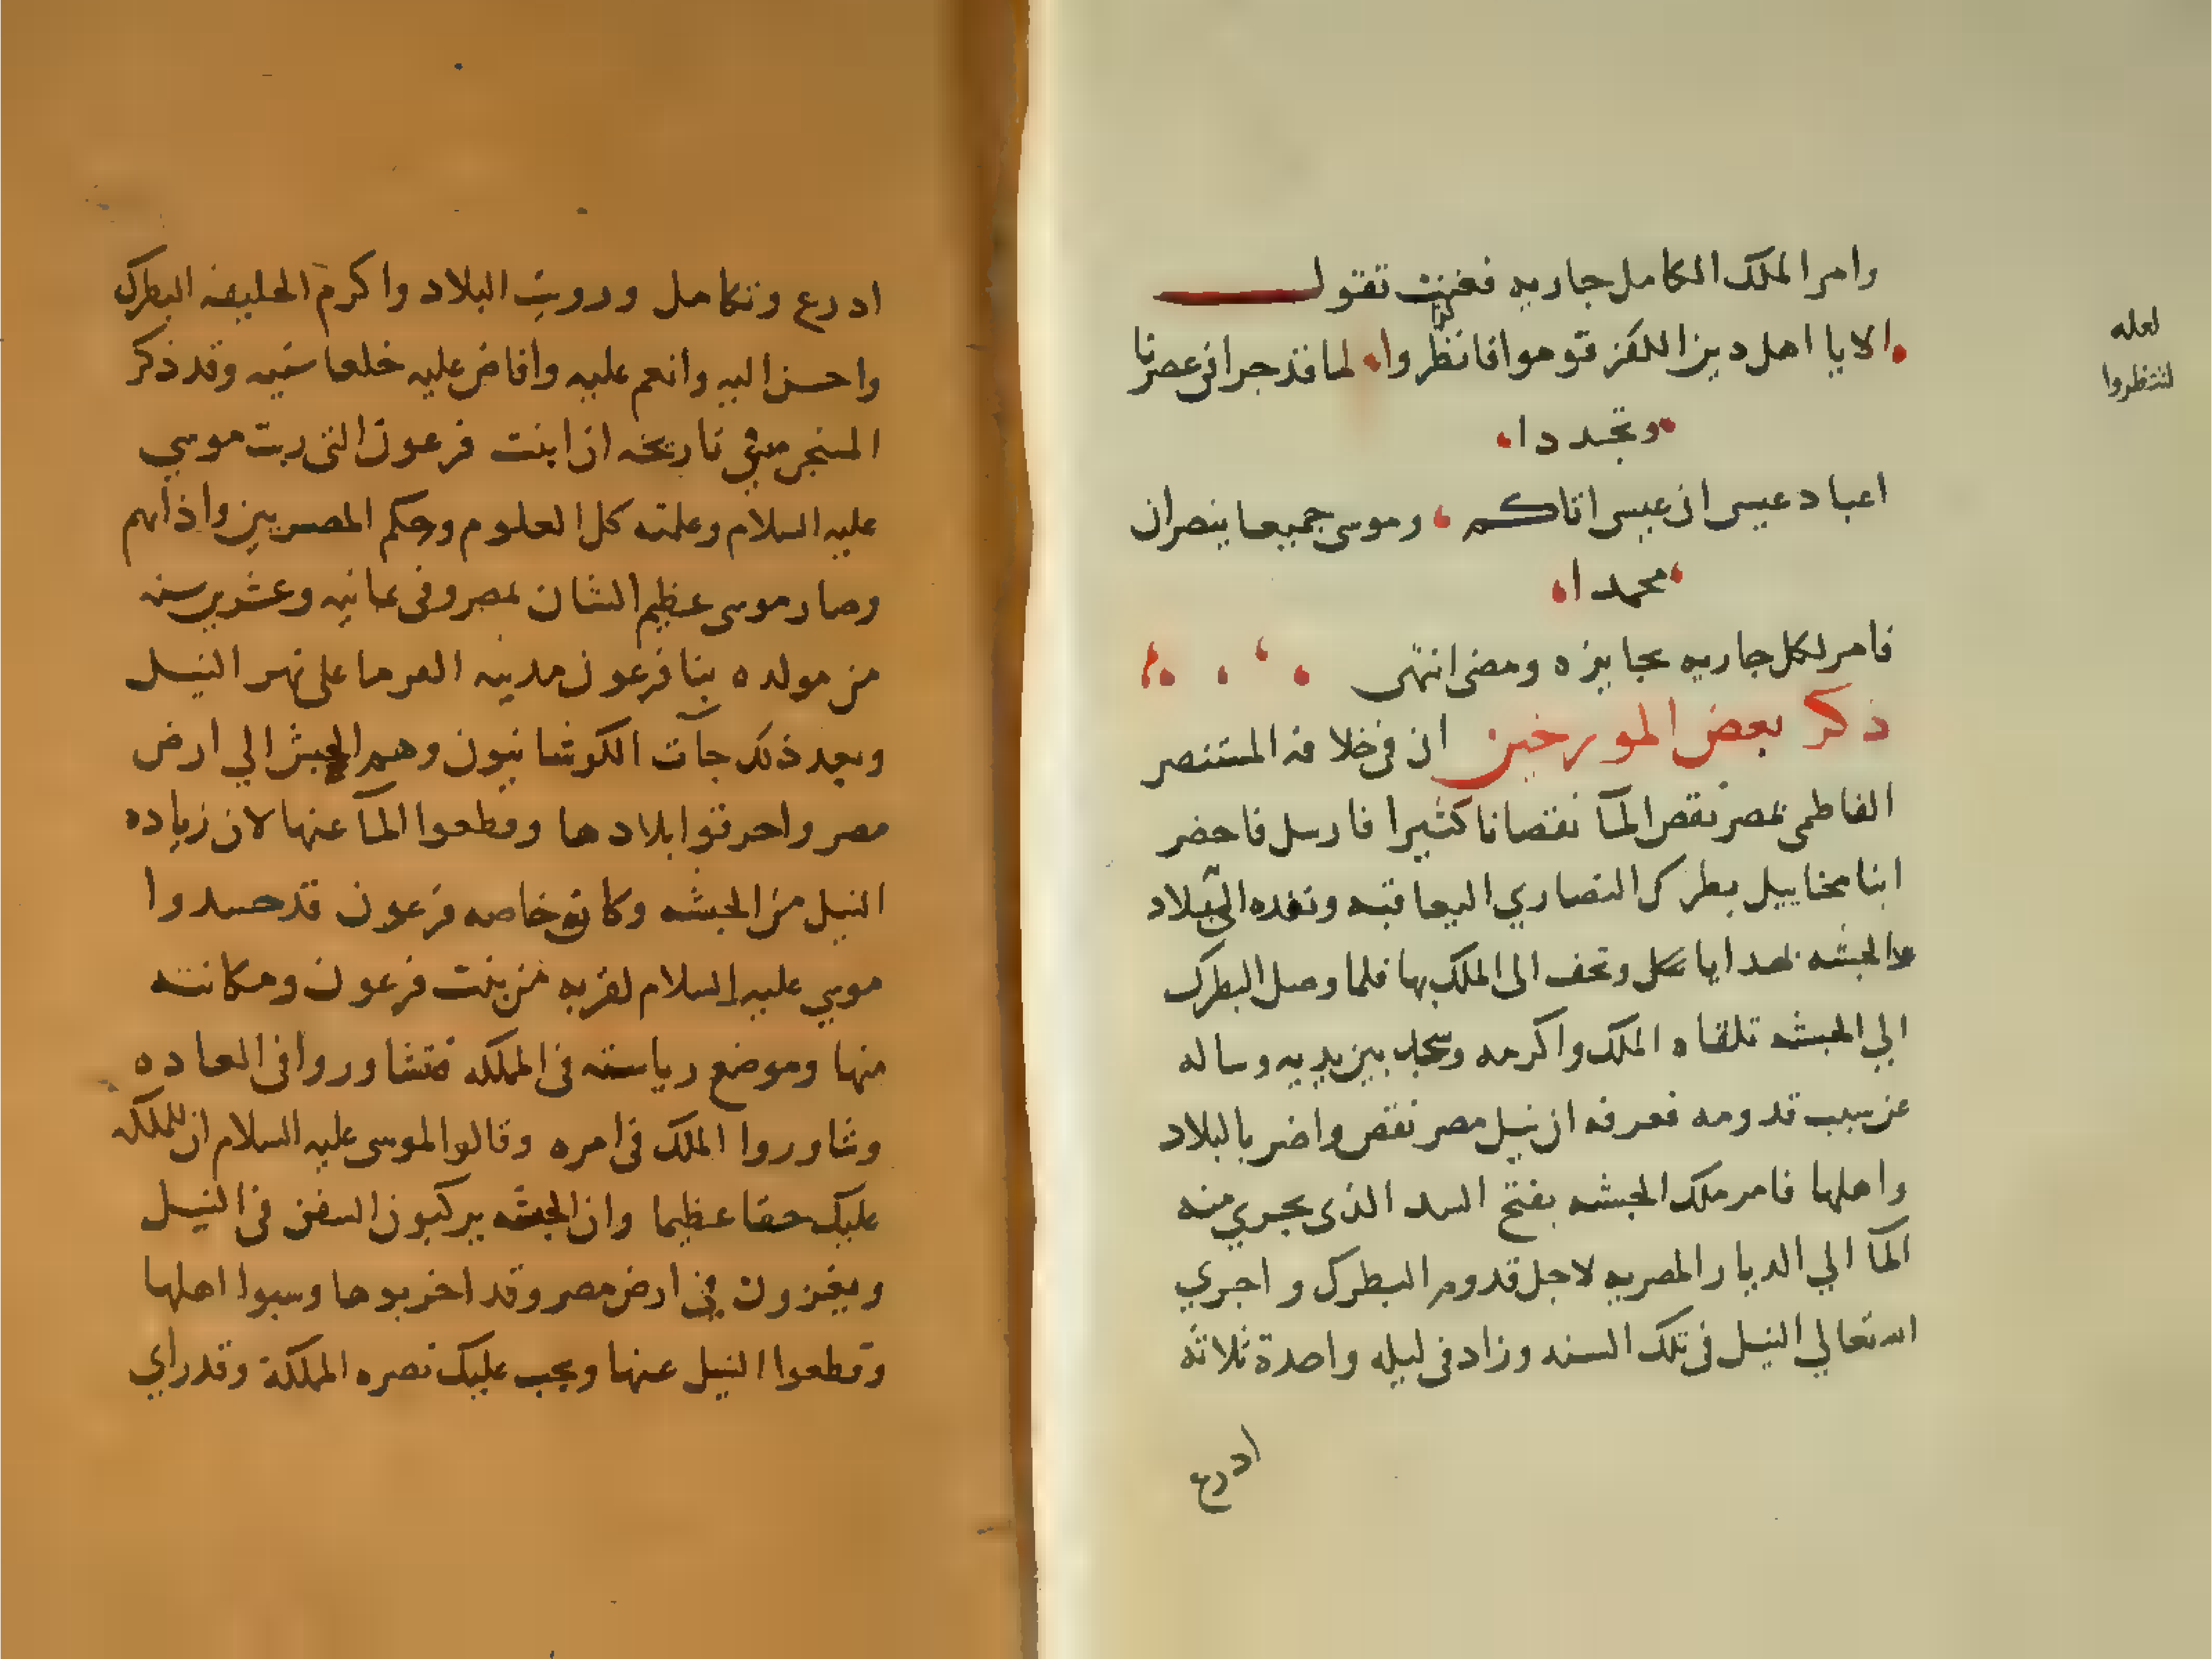 وامر الملك الكامل جاريه فغنت تقول
الا يا اهل دين الكفر قوموا فانظروا لما قد جرا في عصرنا
وتجددا
اعباد عيسى ان عيسى اتاكم وموسى جميعا ينصران
محمدا
فامر لكل جاريه بجايزه ومضى انتهى
ذكر بعض المورخين ان في خلافه المستنصر
الفاطمي بمصر نقص المآ نقصانا كثيرا فارسل فاحضر
انبا مخاييل بطرك النصاري اليعاقبه ونفده الى بلاد
الحبشه بهدايا وتحف الى الملك بها فلما وصل البطرك
الي الحبشه تلقاه الملك واكرمه وسجد بين يديه وساله
عن سبب قدومه فعرفه ان نيل مصر نقص واضر بالبلاد
واهلها فامر ملك الحبشه بفتح السد الذى يجري منه
المآ الي الديار المصريه لاجل قدوم البطرك واجري
الله تعالي النيل في تلك السنه وزاد في ليله واحدة ثلاثه
ادرع
لعله
لتنظروا
ادرع وتكامل ورويت البلاد واكرم الخليفه البطرك
واحسن اليه وانعم عليه وافاض عليه خلعا سنيه وقد ذكر
المنجى في تاريخه ان ابنت فرعون التي ربت موسي
عليه السلام وعلمته كل العلوم وحكم المصريين وادابهم
وصار موسى عظيم الشان بمصر وفي ثمانيه وعشرين سنه
من مولده بنا فرعون مدينه الفرما على نهر النيل
وبعد ذلك جآت الكوشانيون وهم الحبش الي ارض
مصر واحرقوا بلادها وقطعوا المآ عنها لان زياده
النيل من الحبشه وكانو خاصه فرعون قد حسدوا
موسي عليه السلام لقربه من بنت فرعون ومكانته
منها وموضع رياسته في المملكه فتشاوروا في العاده
وشاوروا الملك في امره وقالوا لموسى عليه السلام ان للملكه
عليك حقا عظيما وان الحبشه يركبون السفن في النيل
ويغزون في ارض مصر وقد اخربوها وسبوا اهلها
وقطعوا النيل عنها ويجب عليك نصره المملكة وقد راي